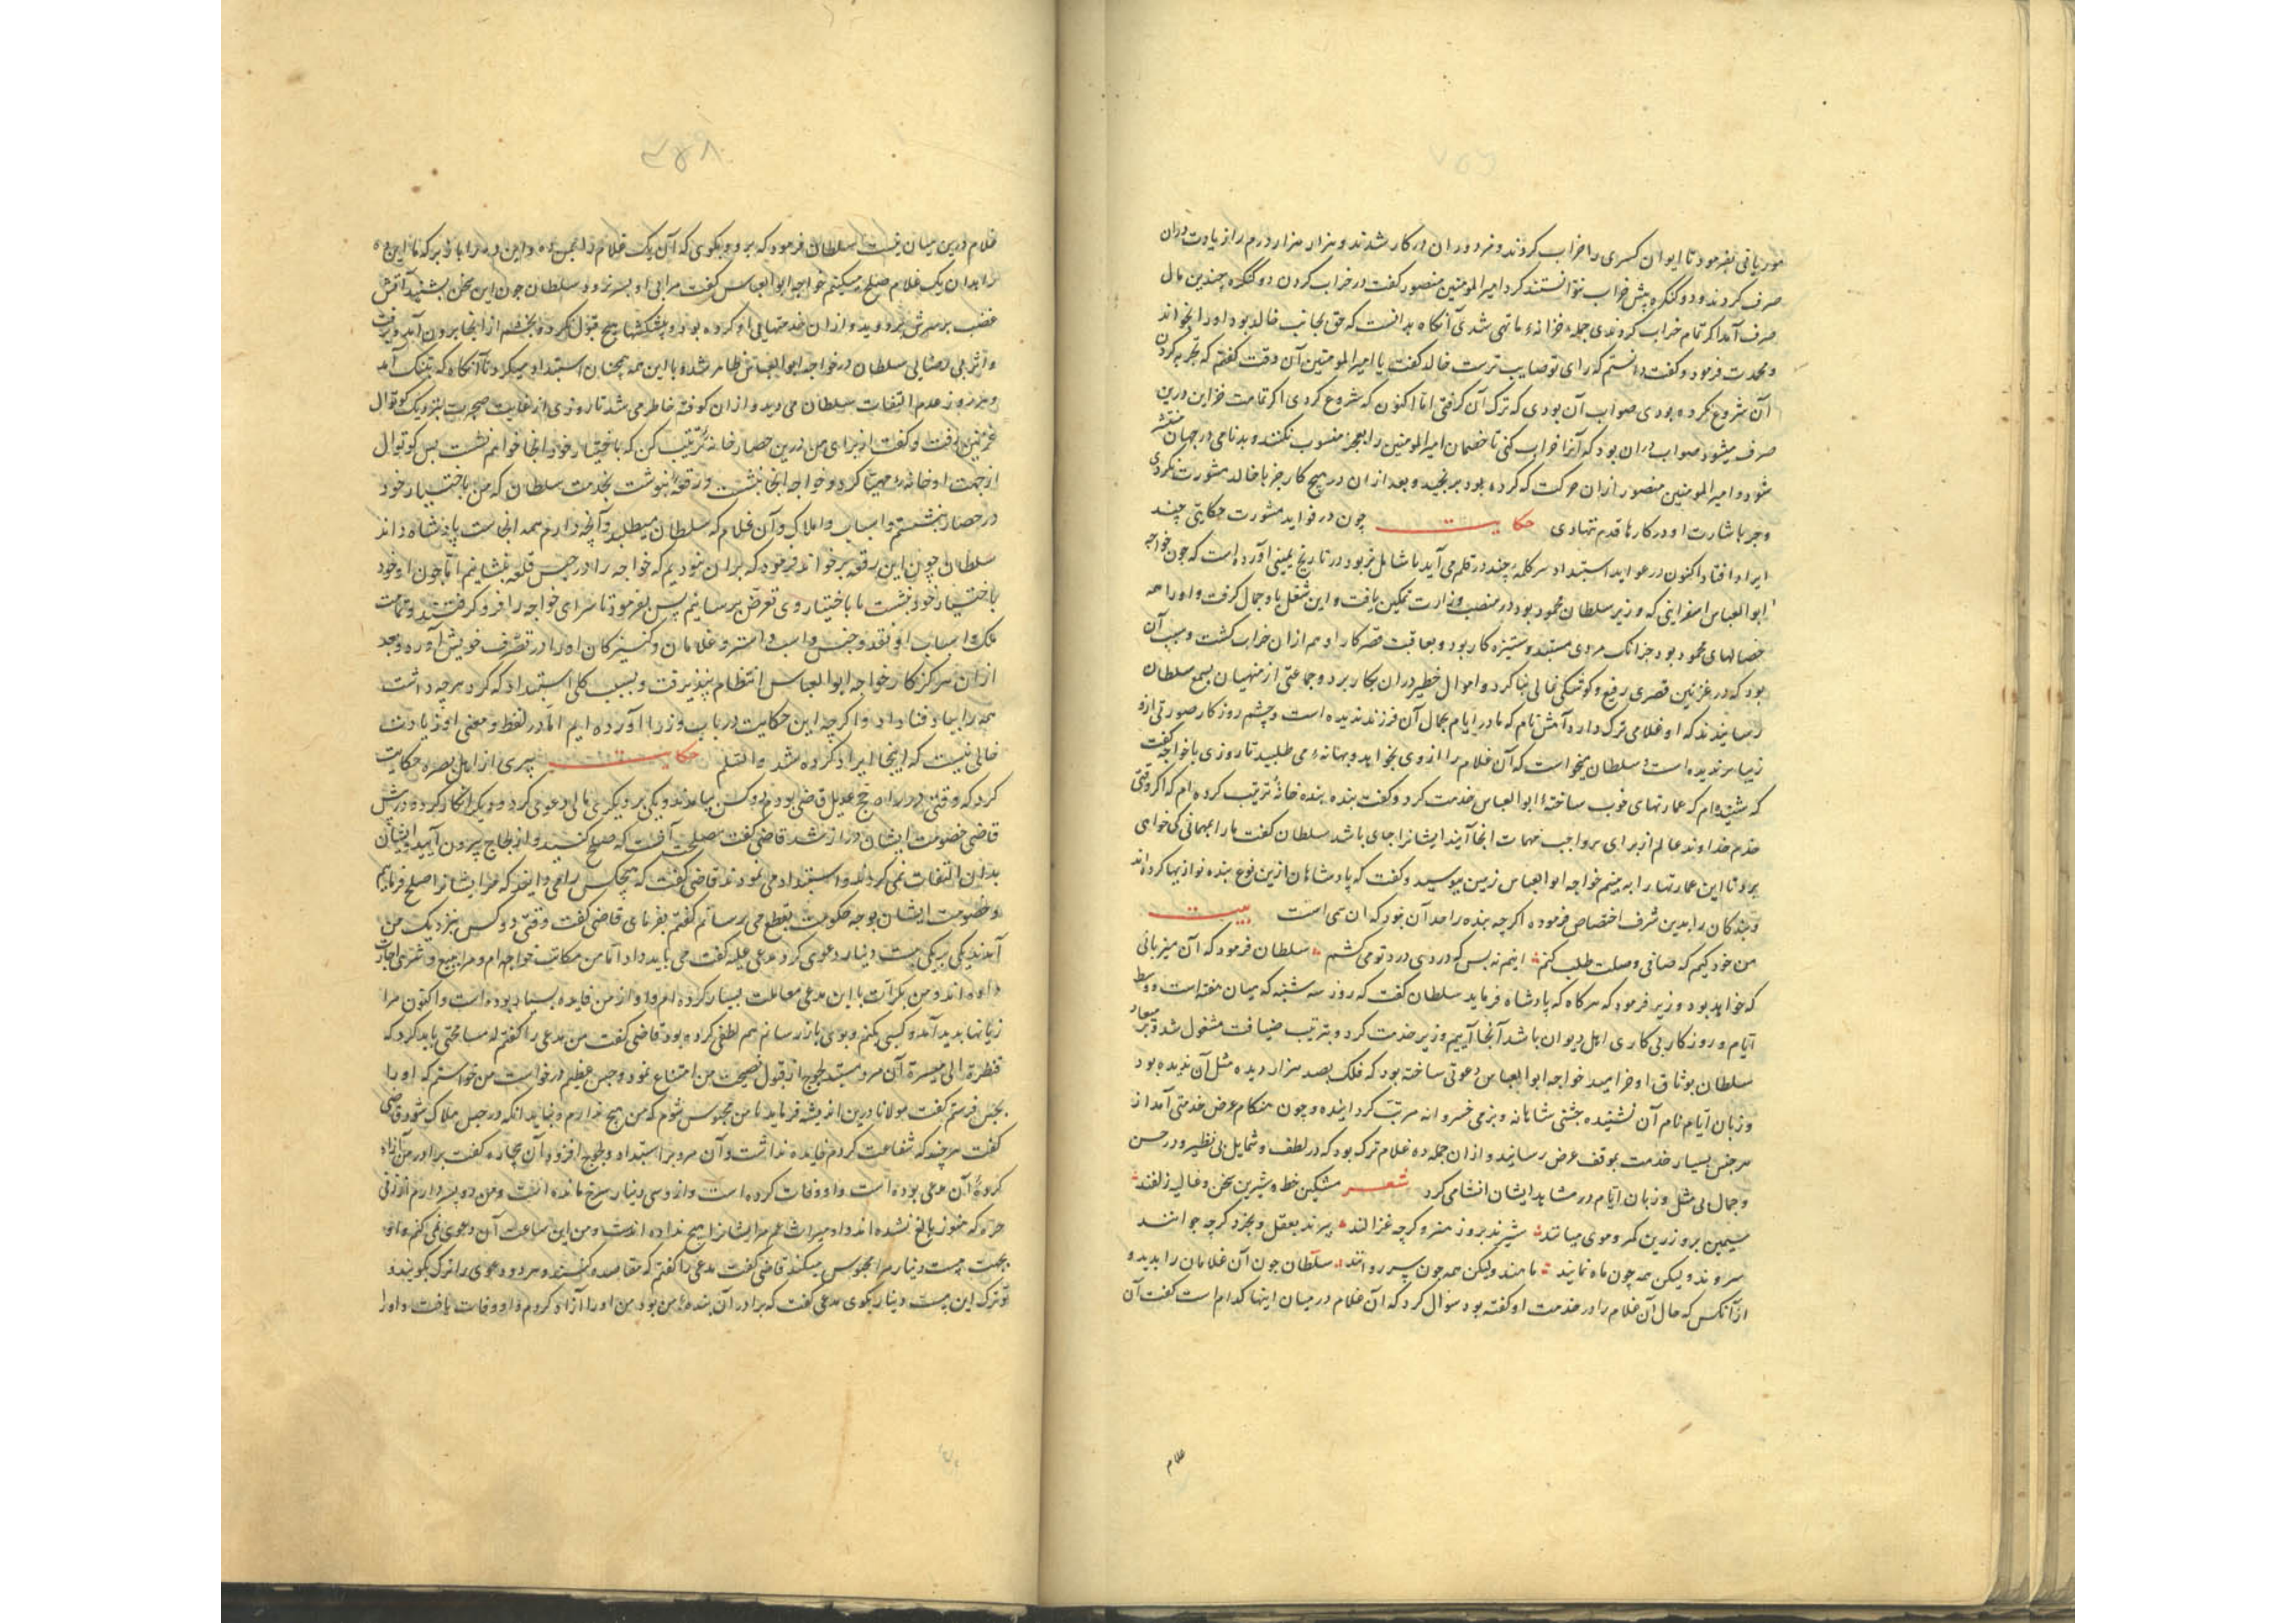 موریانی بفرمود تا ایوان کسری را خراب کردند و مزدوران در کار شدند و هزار هزار درم را زیادت در آن
صرف کردند و دو کنگره بیش خراب نتوانستند کرد امیرالمومنین منصور گفت در خراب کردن دو کنگره چندین مال
صرف آمد اگر تمام خراب کردندی جمله خزانه ما تهی شدی آنگاه بدانست که حق بجانب خالد بود او را بخواند
و محمدت فرمود و گفت دانستم که رای تو صایب ترست خالد گفت یا امیرالمومنین آن وقت گفتم که تخریب کردن
آن شروع نکرده بودی صواب آن بودی که ترک آن گرفتی اما اکنون که شروع کردی اگر تمامت خزاین درین
صرف میشود صواب در آن بود که آنرا خراب کنی تا خصمان امیرالمومنین را بعجز منسوب نکنند و بدنامی در جهان منتشر
شود و امیرالمومنین منصور از آن حرکت که کرده بود برنجید و بعد از آن در هیچ کار جز با خالد مشورت نکردی
و جز باشارت او در کارها قدم ننهادی حکایت چون در فواید مشورت حکایتی چند
ایراد افتاد اکنون در عواید استبداد سر کلمهٔ چند در قلم می آید تا شامل بود در تاریخ یمینی آورده است که چون خواجه
ابوالعباس اسفراینی که وزیر سلطان محمود بود در منصب وزارت تمکین یافت و این شغل باو جمال گرفت و او را همه
خصالهای محمود بود جز آنک مردی مستبد و ستیزه کار بود و بعاقبت قصر کار او هم از آن خراب گشت و سبب آن
بود که در غزنین قصری رفیع و کوشکی عالی بنا کرد و اموال خطیر در آن بکار برد و جماعتی از منهیان بسمع سلطان
رسانیدند که او غلامی ترک دارد آقش نام که مادر ایام بجمال آن فرزند ندیده است و چشم روزگار صورتی ازو
زیباتر ندیده است و سلطان میخواست که آن غلام را از وی بخواهد و بهانهٔ می طلبید تا روزی با خواجه گفت
که شنیده ام که عمارتهای خوب ساختهٔ ابوالعباس خدمت کرد و گفت بنده بنده خانهٔ ترتیب کرده ام که اگر وقتی
خدم خداوند عالم از برای مواجب مهمات آنجا آیند ایشانرا جای باشد سلطان گفت ما را بمهمانی کی خواهی
برد تا این عمارتها را ببینم خواجه ابوالعباس زمین ببوسید و گفت که پادشاهان ازین نوع بنده نوازیها کرده اند
و بندگان را بدین شرف اختصاص فرموده اگر چه بنده را حد آن نبود که آن تمنی است بیت
من خود کیم که صافی وصلت طلب کنم اینم نه بس که دردی درد تو می کشم سلطان فرمود که آن میزبانی
که خواهد بود وزیر فرمود که هر گاه که پادشاه فرماید سلطان گفت که روز سه شنبه که میان هفته است و وسط
ایام و روزگار بی کاری اهل دیوان باشد آنجا آییم وزیر خدمت کرد و بترتیب ضیافت مشغول شد و بر میعاد
سلطان بوثاق او خرامید خواجه ابوالعباس دعوتی ساخته بود که فلک بصد هزار دیده مثل آن ندیده بود
و زبان ایام نام آن نشنیده جشنی شاهانه و بزمی خسروانه مرتب گردانیده و چون هنگام عرض خدمتی آمد از
هر جنس بسیار خدمت بموقف عرض رسانید و از آن جمله ده غلام ترک بود که در لطف و شمایل بی نظیر و در حسن
و جمال بی مثل و زبان ایام در مشاهد ایشان انشا می کرد شعر مشکین خط و شیرین سخن و غالیه زلفند
سیمین بر و زرین کمر و موی میانند شیرند بروز هنر و گرچه غزالند پیرند بعقل و بخرد گرچه جوانند
سروند ولیکن همه چون ماه نمایند ماهند ولیکن همه چون سرو روانند سلطان چون آن غلامان را بدید و
از آنکس که حال آن غلام را در خدمت او گفته بود سوال کرد که آن غلام در میان اینها کدام است گفت آن
غلام
غلام درین میان نیست سلطان فرمود که برو و بگوی که آن یک غلام را بمن ده و این ده را باز بر که ما این ده
را بدان یک غلام صلح میکنم خواجه ابوالعباس گفت مرا بی او بسر نرود سلطان چون این سخن بشنید آتش
غضب بر سرش بردوید و از آن خدمتهایی او کرده بود و پیشکشها هیچ قبول نکرد و بخشم از آنجا برون آمد و برفت
و اثر بی رضایی سلطان در خواجه ابوالعباس ظاهر شده با این همه همچنان استبداد میکرد تا آنگاه که بتنگ آمد
و هر روز عدم التفات سلطان می دید و از آن کوفته خاطر می شد تا روزی از غایت ضجرت بنزدیک کوتوال
غزنین رفت و گفت از برای من درین حصار خانهٔ ترتیب کن که باختیار خود آنجا خواهم نشست پس کوتوال
از جهت او خانهٔ مهیا کرد و خواجه آنجا بنشست و رقعهٔ نوشت بخدمت سلطان که من باختیار خود
در حصار بنشستم و اسباب و املاک و آن غلام که سلطان میطلبد و آنچه دارم همه آنجاست پادشاه داند
سلطان چون این رقعه برخواند فرمود که بر آن نبودیم که خواجه را در حبس قلعه بنشانیم اما چون او خود
باختیار خود بنشست ما باختیار وی تعرض نرسانیم پس بفرمود تا سرای خواجه را فرو گرفتند و تمامت
ملک و اسباب او نقد و جنس و اسب و استر و غلامان و کنیزکان او را در تصرف خویش آورد و بعد
از آن هرگز کار خواجه ابوالعباس انتظام نپذیرفت و بسبب کلی استبداد که کرد هر چه داشت
همه را بباد فنا داد و اگر چه این حکایت در باب وزرا آورده ایم اما در لفظ و معنی او زیادت
خالی نیست که اینجا ایراد کرده شد حکایت پیری از اهل بصره حکایت
کرد که وقتی در راه حج عدیل قاضی بودم دو کس بیامدند و یکی بر دیگری مالی دعوی کرد و دیگری انکار کرد و در پیش
قاضی خصومت ایشان دراز شد قاضی گفت مصلحت آنست که صلح کنید و از لجاج بیرون آیید و ایشان
بدان التفات نمی کردند و استبداد می نمودند قاضی گفت که هیچکس را می دانید که من ایشانرا صلح فرمایم
و خصومت ایشان بوجه حکومت بقطع می رسانم گفتم بفرمای قاضی گفت وقتی دو کس بنزدیک من
آمدند یکی بر یکی بیست دینار دعوی کرد مدعی علیه گفت می باید داد اما من مکاتب خواجه ام و مرا ببیع و شری اجازت
داده اند و من بکرات با این مدعی معاملت بسیار کرده ام و او از من فایده بسیار ربوده است و اکنون مرا
زیانها پدید آمد و کسبی بکنم و بوی باز رسانم هم لطفی کرده بود قاضی گفت من مدعی را گفتم که مسامحتی باید کرد که
فنظرة الی میسرة آن مرد مستبد لجوج از قبول نصیحت من امتناع نمود و حبس غریم درخواست من خواستم که او را
بحبس فرستم گفت مولانا درین اندیشه فرماید تا من محبوس شوم که من هیچ ندارم و نباید آنکه در حبس هلاک شود قاضی
گفت هر چند که شفاعت کردم فایده نداشت و آن مرد بر استبداد و لجوج افزود آن بیچاره گفت برادر من آزاد
کردهٔ آن مدعی بوده است و او وفات کرده است و ازو سی دینار سرخ مانده است و من دو پسر دارم از زنی
حره که هنوز بالغ نشده اند و او میراث عم مر ایشانرا هیچ نداده است و من این ساعت آن دعوی نمی کنم و او
بجهت بیست دینار مرا محبوس میکند قاضی گفت مدعی را گفتم که مقاصه کنید و هر دو دعوی را ترک بگویید و
تو ترک این بیست دینار بگوی مدعی گفت که برادر آن بندهٔ من بود من او را آزاد کردم و او وفات یافت و او را